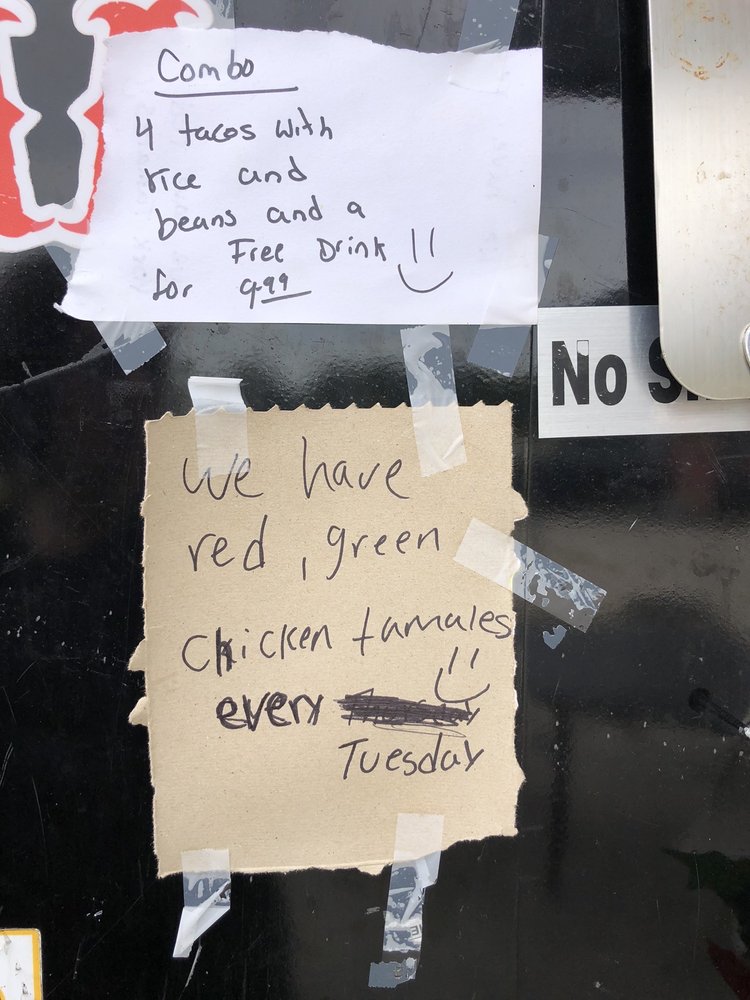 Combo
4 tacos with
rice and
beans and a
Free Drink
for 9.99
No
We have
red, green
Chicken tamales
every
Tuesday